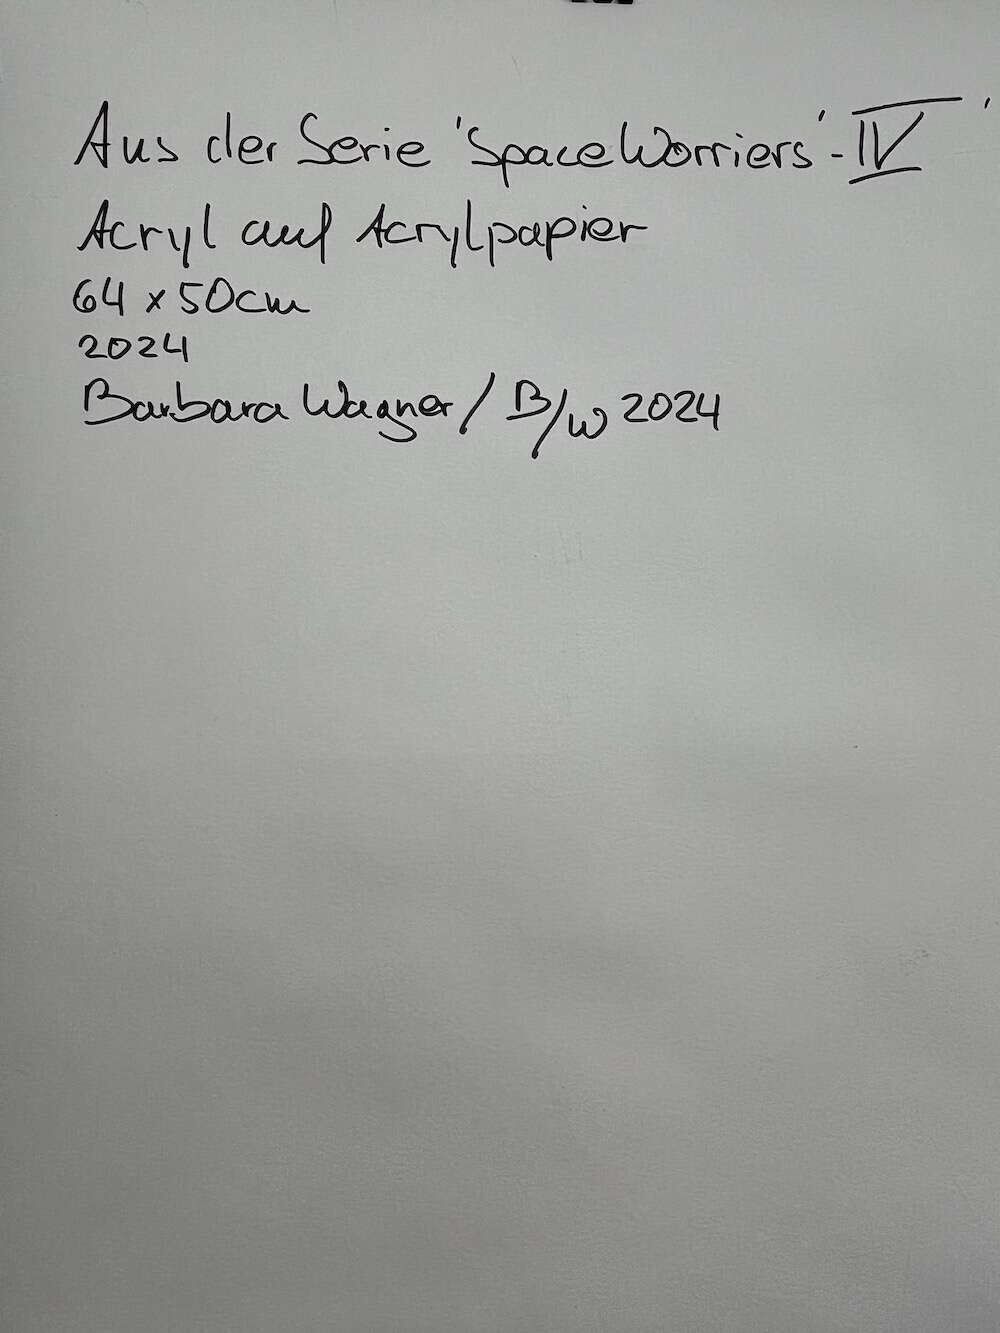 Aus der Serie 'SpaceWorriers' - IV'
Acryl auf Acrylpapier
64 x 50cm
2024
Barbara Wagner / B/W 2024